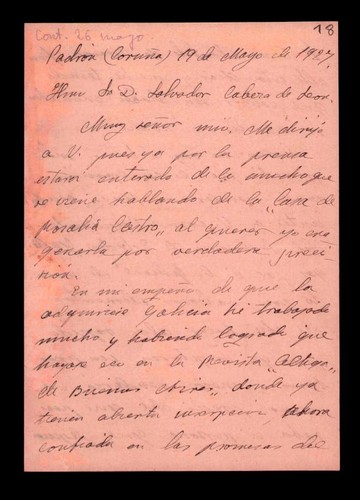 Cont. 26 mayo.
18
Padrón (Coruña) 19 de Mayo de 1927.
Ilmo Sr D. Salvador Cabeza de Leon.
Muy señor mio. Me dirijo
a V. pues ya por la prensa
estará enterado de lo mucho que
se viene hablando de la "Casa de
Rosalía Castro", al querer yo ena
genarla por verdadera preci
sion.
En mi empeño de que la
adquiriese Galicia he trabajado
mucho y habiendo logrado que
hagan eco en la Revista
de Buenos Aires, donde ya
tienen abierta suscripcion, ahora
confiada en las promesas del